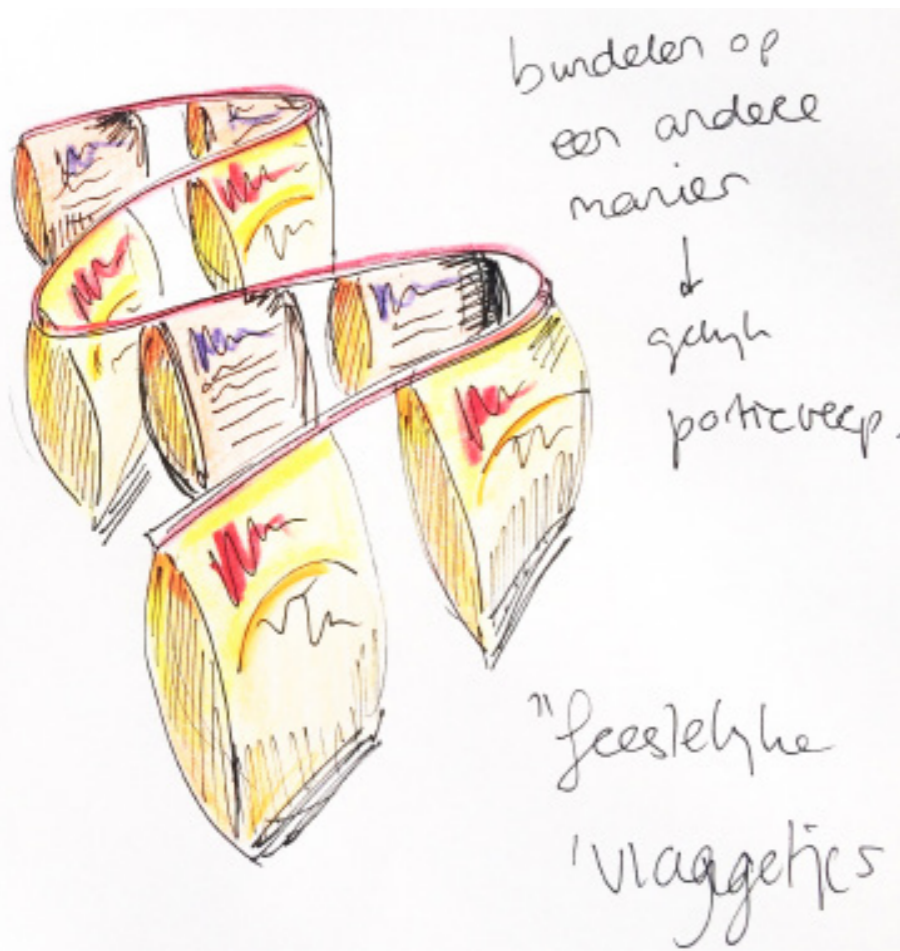 bundelen op
een andere
manier
gelijk
portieverp.
"feestelijke
'vlaggetjes